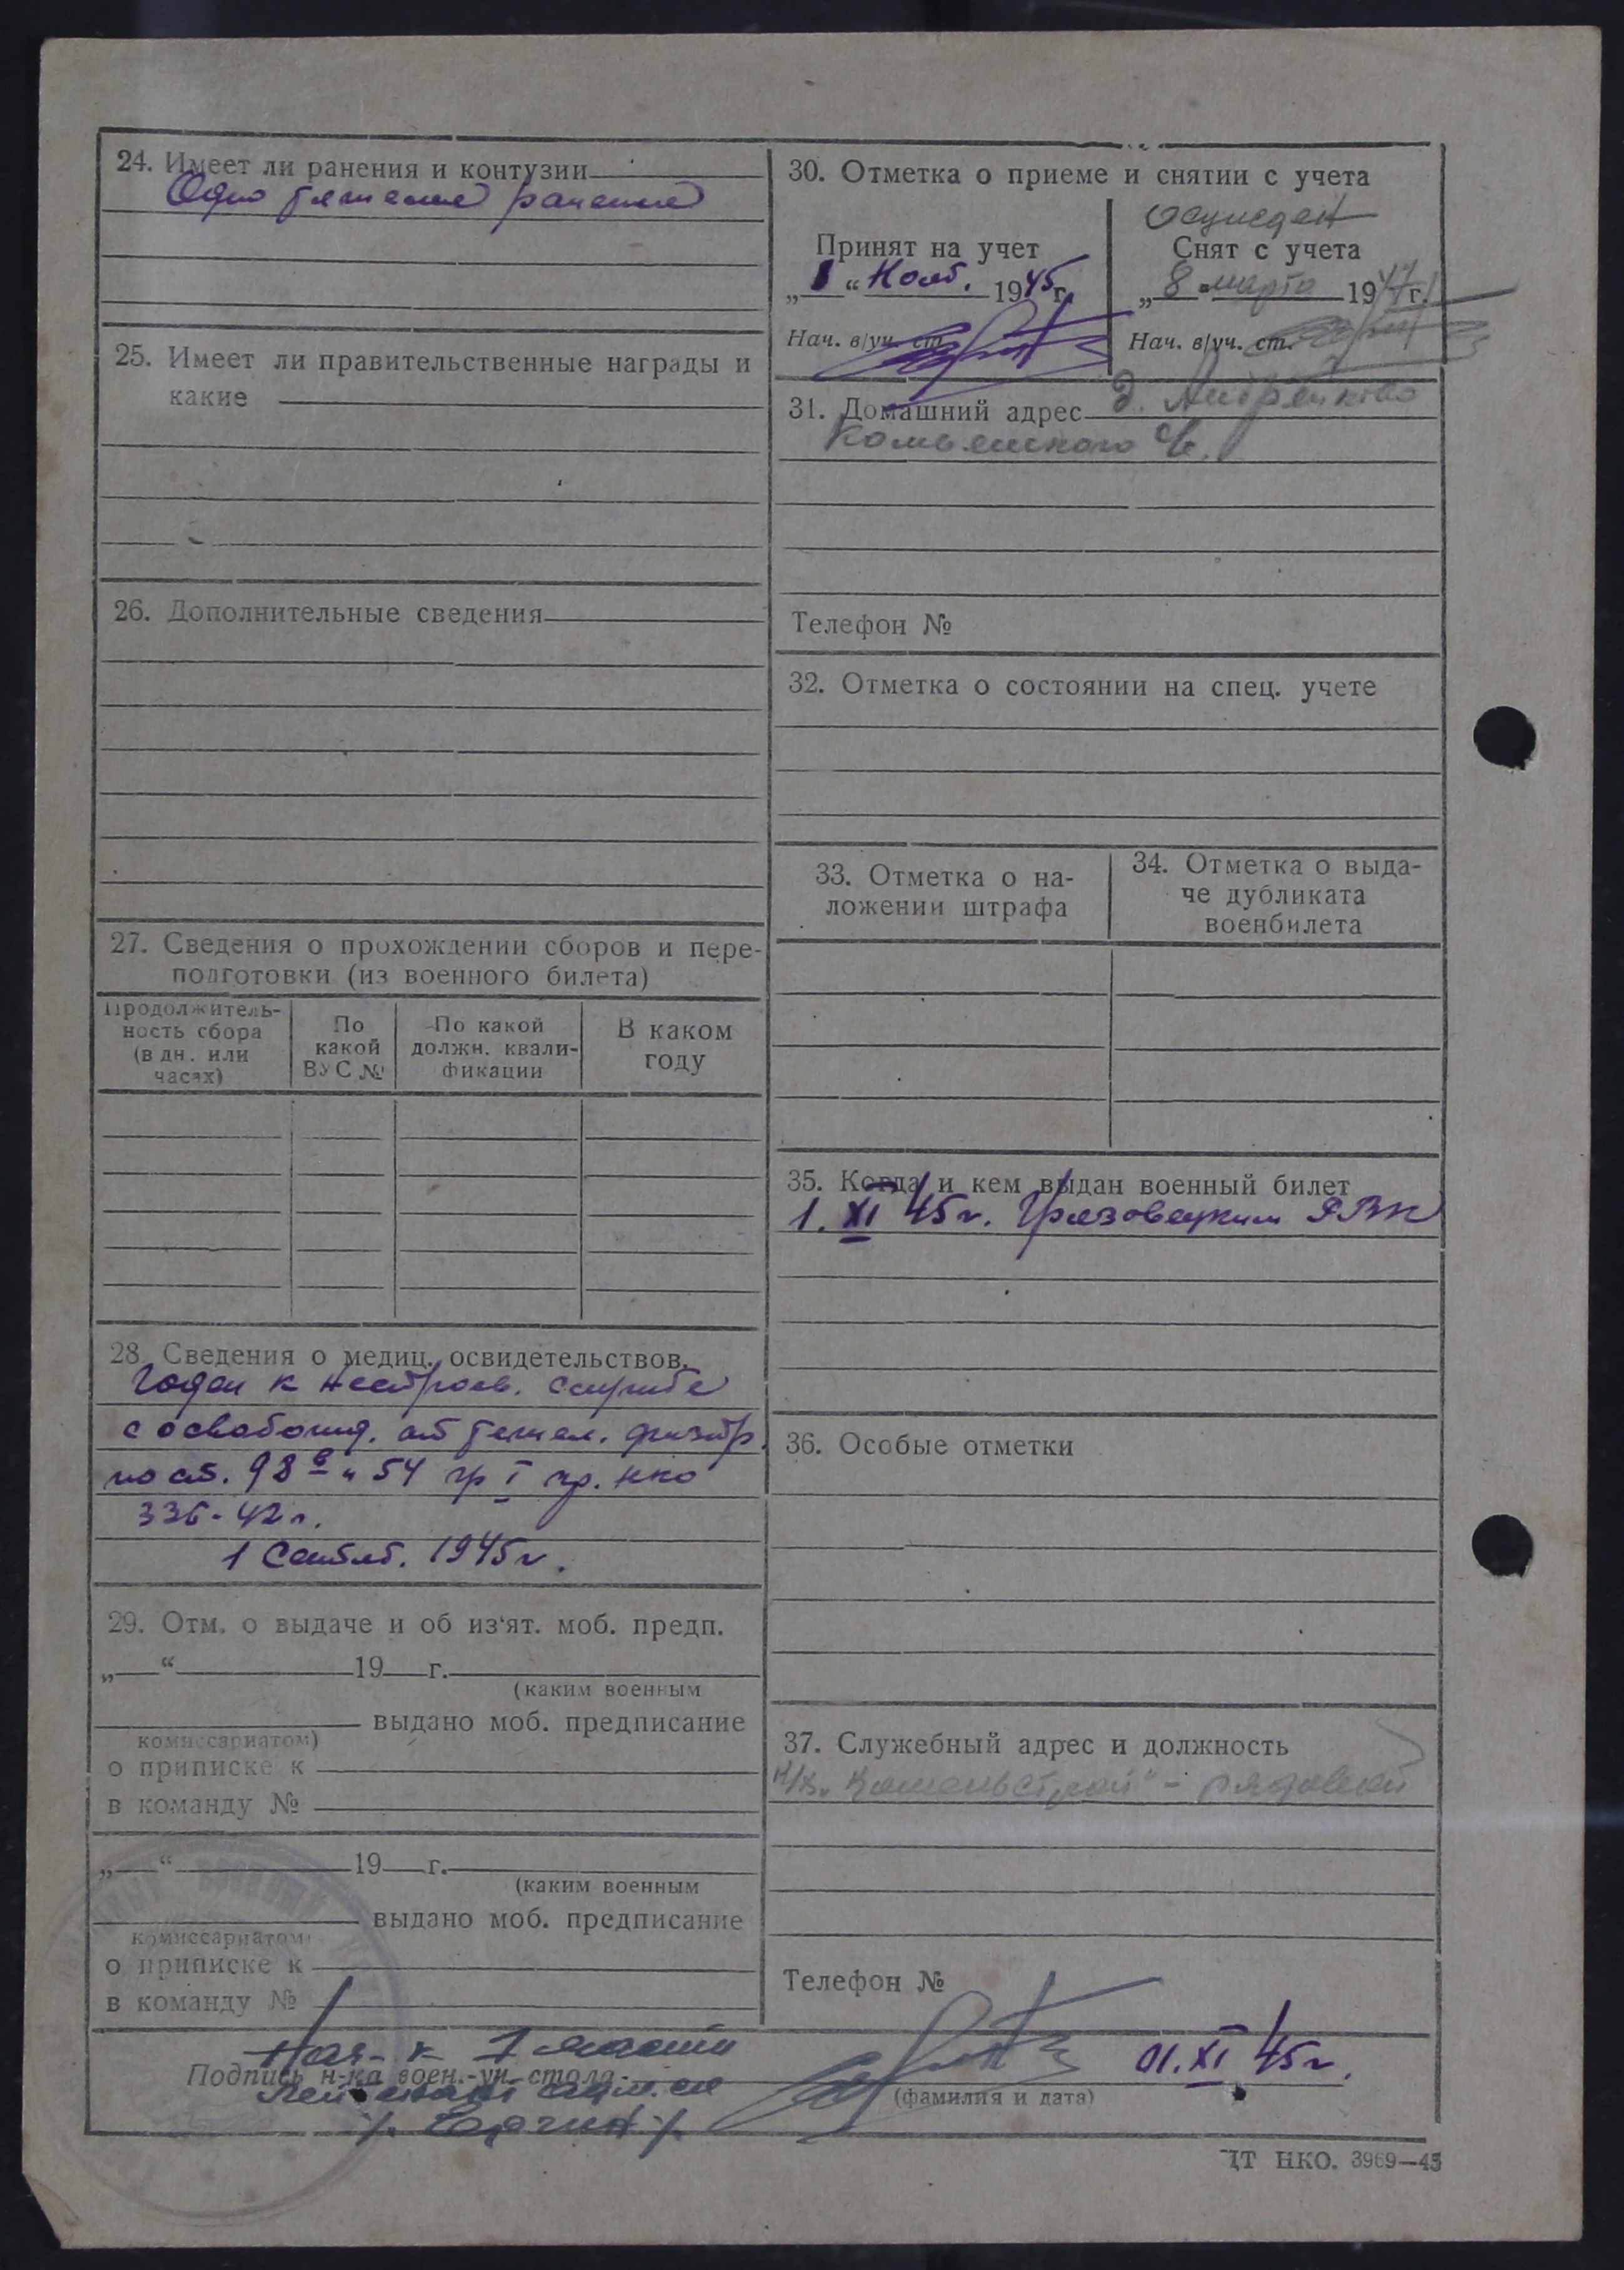 24. Имеет ли ранения и контузии
Одно тяжелое ранение
25. Имеет ли правительственные награды и
какие
26. Дополнительные сведения
27. Сведения о прохождении сборов и пере-
подготовки (из военного билета)
Продолжитель-
ность сбора
(в дн. или
часах)
По
какой
ВУС №
По какой
должн. квали-
фикации
В каком
году
28. Сведения о медиц. освидетельствов.
Годен к нестроев. службе
с освобожд. от тяжел. физтр.
по ст. 98 в и 54 гр I пр. НКО
336-42 г.
1 Сентяб. 1945 г.
29. Отм. о выдаче и об из‘ят. моб. предп.
„ “ 19 г.
(каким военным
выдано моб. предписание
комиссариатом)
о приписке к
в команду №
„ “ 19 г.
(каким военным
выдано моб. предписание
комиссариатом)
о приписке к
в команду №
30. Отметка о приеме и снятии с учета
осужден
Принят на учет
„1“ Нояб. 1945 г.
Нач. в/уч. ст.
Снят с учета
„8“ марта 1947 г.
Нач. в/уч. ст.
31. Домашний адрес д. Андрейково
Комьянского с/с.
Телефон №
32. Отметка о состоянии на спец. учете
33. Отметка о на-
ложении штрафа
34. Отметка о выда-
че дубликата
военбилета
35. Когда и кем выдан военный билет
1. XI 45 г. Грязовецким РВК
36. Особые отметки
37. Служебный адрес и должность
- рядовой
Телефон №
Нач- к 1 части
Подпись н-ка воен.-уч. стола
Лейтенант
01.XI 45 г.
(фамилия и дата)
ЦТ НКО. 3969—45